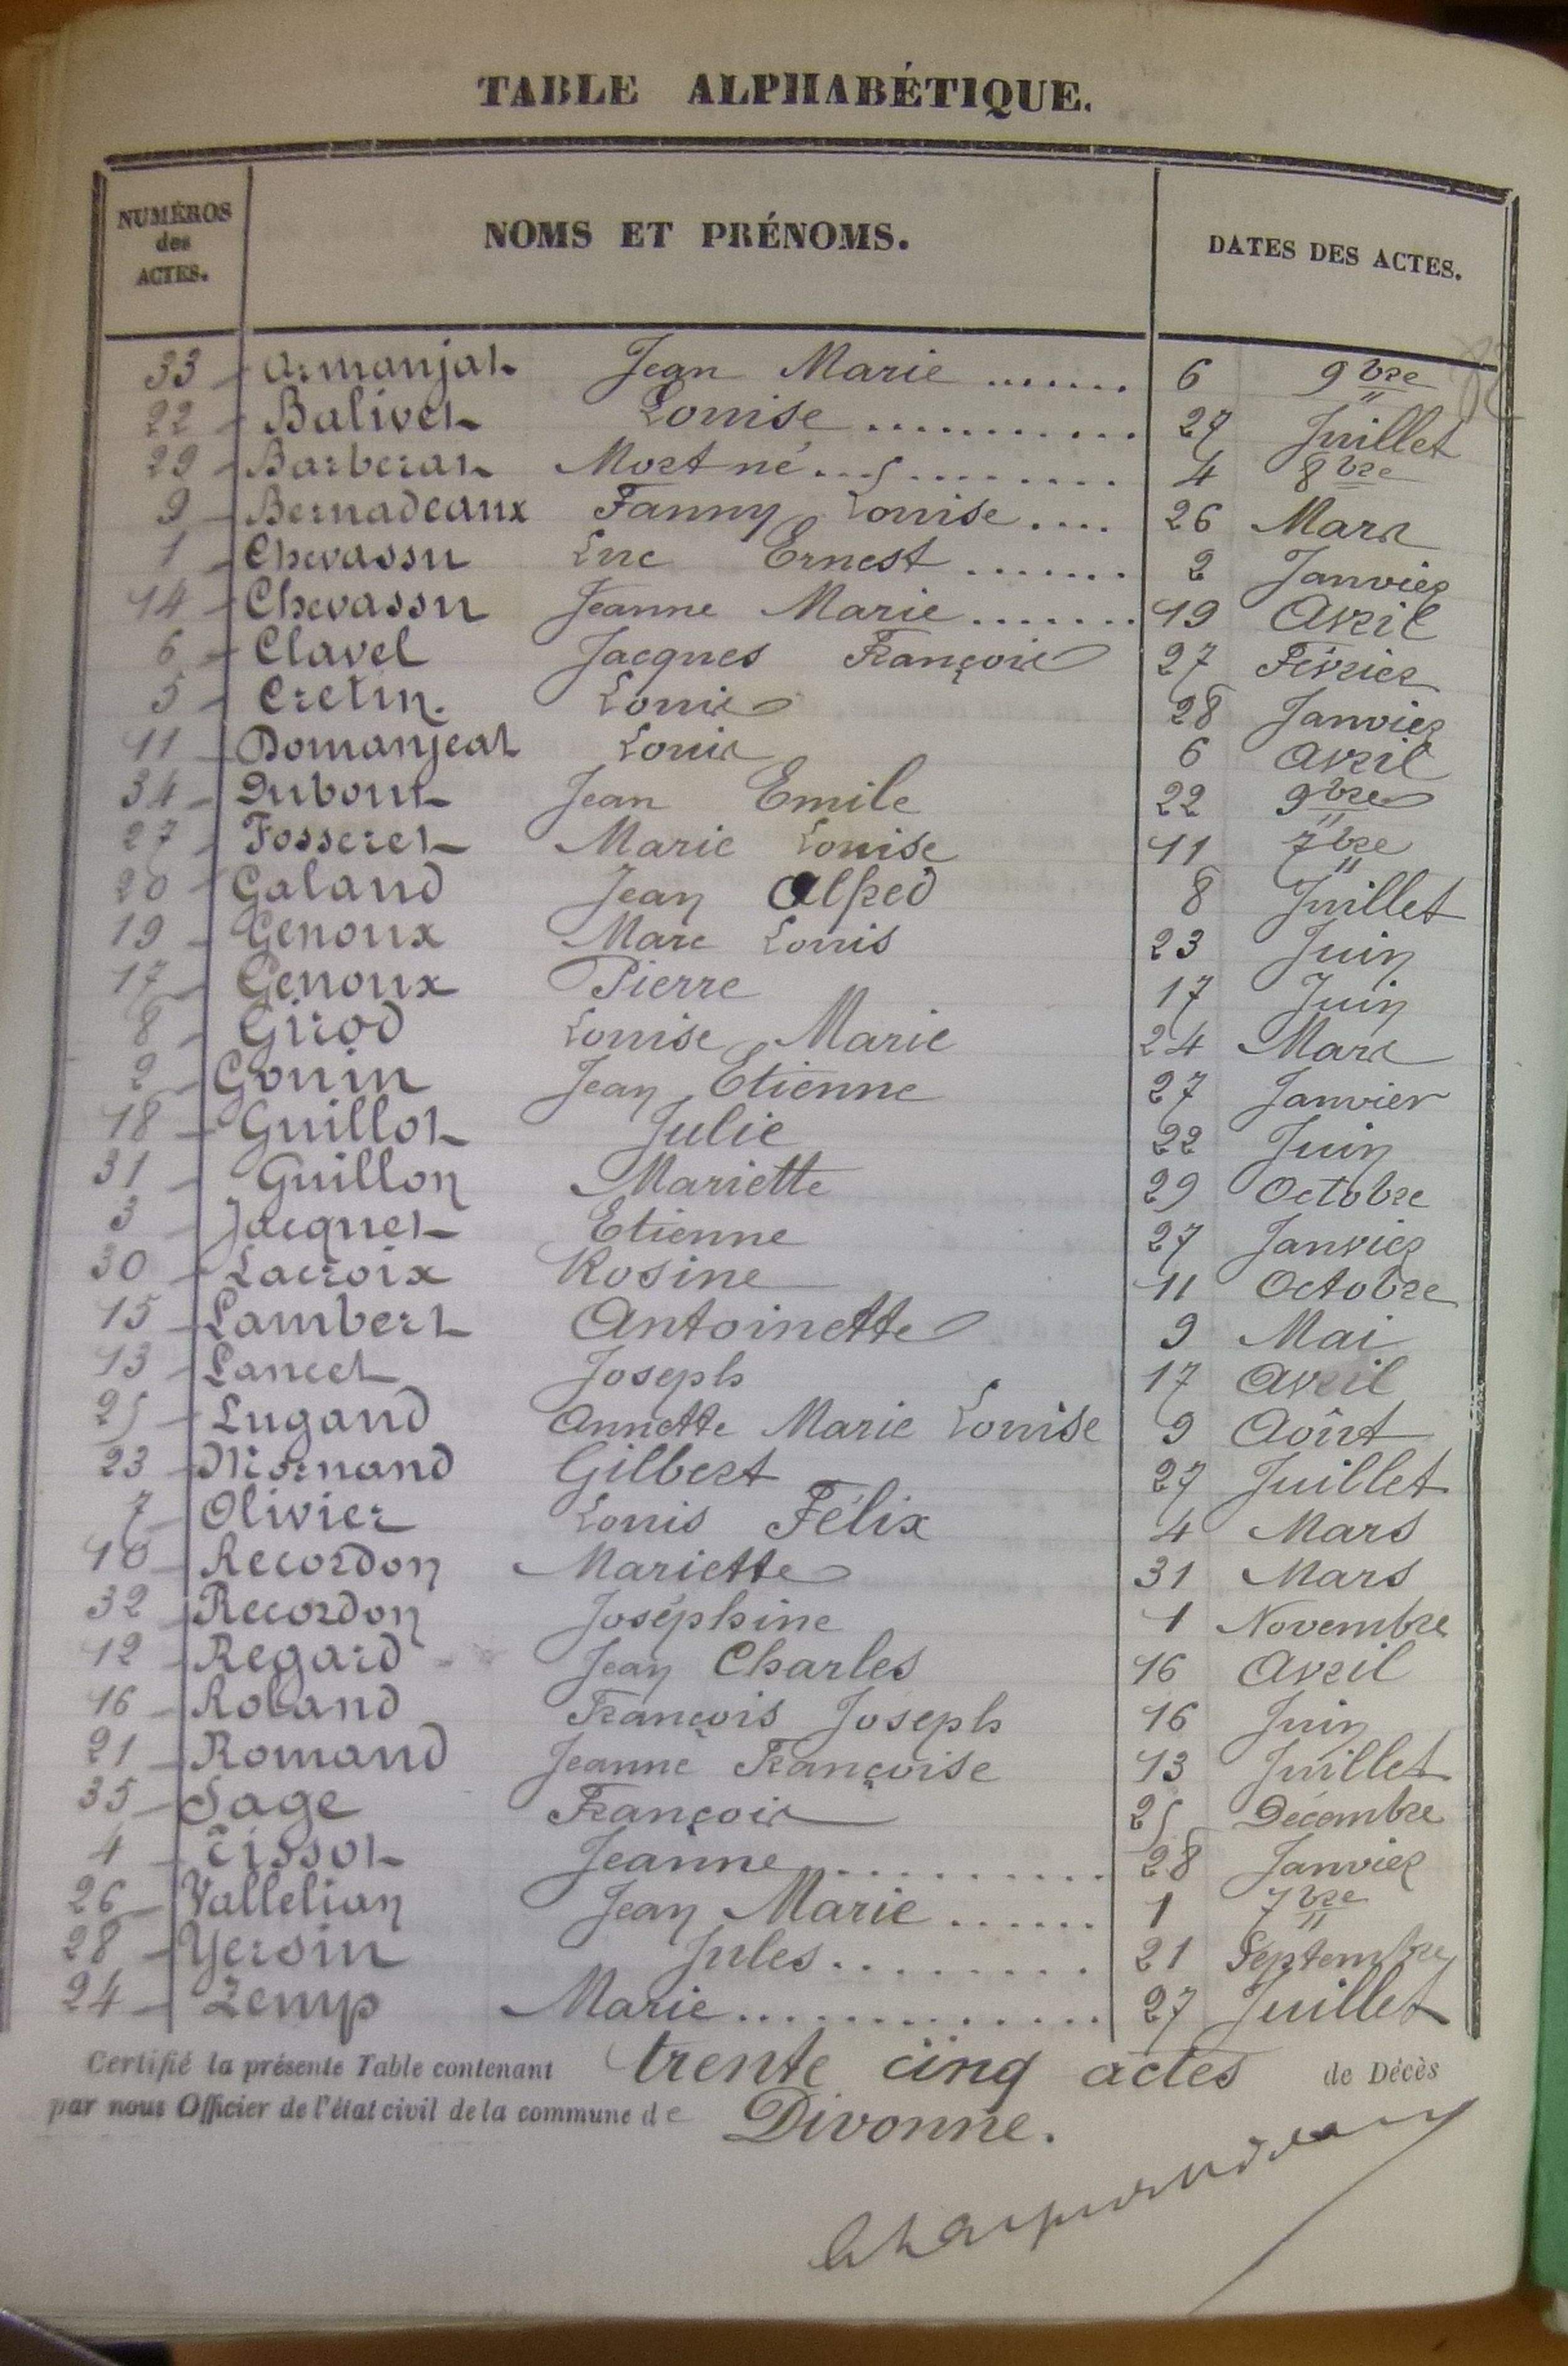 TABLE ALPHABÉTIQUE.
NUMÉROS des ACTES. NOMS ET PRÉNOMS. DATES DES ACTES.
33 Armanjat Jean Marie ....... 6 9bre
22 Balivet Louise ........... 27 Juillet
29 Barberat Mort né ........... 4 8bre
9 Bernadeaux Fanny Louise .... 26 Mars
1 Chevassu Luc Ernest ....... 2 Janvier
14 Chevassu Jeanne Marie ....... 19 Avril
6 Clavel Jacques François 27 Février
5 Cretin. Louis 28 Janvier
11 Domanjeat Louis 6 Avril
34 Dubout Jean Emile 22 9bre
27 Fosseret Marie Louise 11 7bre
20 Galand Jean Alfred 8 Juillet
19 Genoux Marc Louis 23 Juin
17 Genoux Pierre 17 Juin
8 Girod Louise Marie 24 Mars
2 Gonin Jean Etienne 27 Janvier
18 Guillot Julie 22 Juin
31 Guillon Mariette 29 Octobre
3 Jacquet Etienne 27 Janvier
30 Lacroix Rosine 11 Octobre
15 Lambert Antoinette 9 Mai
13 Lancet Joseph 17 Avril
25 Lugand Annette Marie Louise 9 Août
23 Mornand Gilbert 27 Juillet
7 Olivier Louis Félix 4 Mars
10 Recordon Mariette 31 Mars
32 Recordon Joséphine 1 Novembre
12 Regard Jean Charles 16 Avril
16 Roland François Joseph 16 Juin
21 Romand Jeanne Françoise 13 Juillet
35 Sage François 25 Décembre
4 Tissot Jeanne .......... 28 Janvier
26 Vallelian Jean Marie ...... 1 7bre
28 Yersin Jules ........ 21 Septembre
24 Zemp Marie ............ 27 Juillet
Certifié la présente Table contenant trente cinq actes de Décès
par nous Officier de l'état civil de la commune de Divonne.